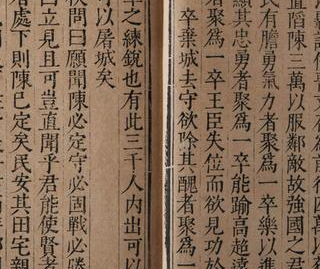 前行四萬以
陷陳三萬以服鄰敵故強國之君
民有膽勇氣力者聚為一卒樂以進
顯其忠勇者聚為一卒能踰高超遠
者聚為一卒王臣失位而欲見功於
卒棄城去守欲除其醜者聚為一
之練銳也有此三千人內出可以
可以屠城矣
侯問曰願聞陳必定守必固戰必勝
曰立見且可豈直聞乎君能使賢者
者處下則陳已定矣民安其田宅親